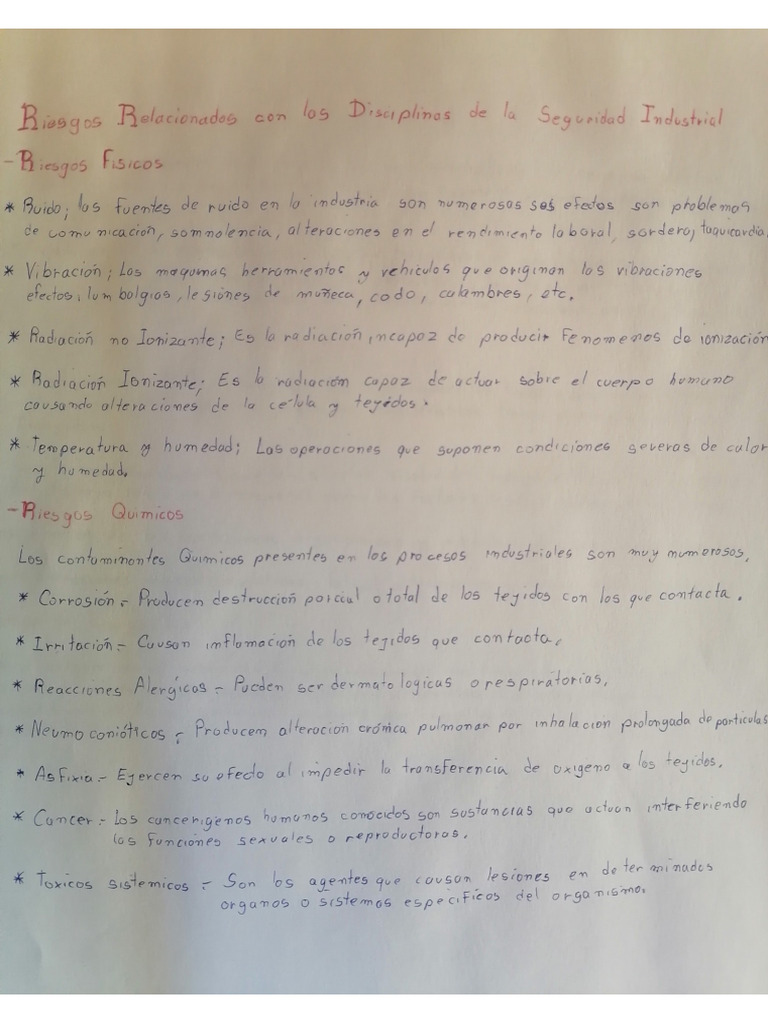 Riesgos Relacionados con las Disciplinas de la Seguridad Industrial
- Riesgos Fisicos
* Ruido; las fuentes de ruido en la industria son numerosas ses efectos son problemas
de comunicación, somnolencia, alteraciones en el rendimiento laboral, sordera, taquicardia.
* Vibración; Las maquinas herramientas y vehiculos que originan las vibraciones
efectos, lumbalgias, lesiónes de muñeca, codo, calambres, etc.
* Radiación no Ionizante; Es la radiación incapaz de producir Fenomenos de ionización
* Radiación Ionizante; Es la radiación capaz de actuar sobre el cuerpo humano
causando alteraciones de la celula y tejidos.
* Temperatura y humedad; Las operaciones que suponen condiciones severas de calor
y humedad.
- Riesgos Quimicos
Los contaminantes Quimicos presentes en los procesos industriales son muy numerosos.
* Corrosión.- Producen destrucción parcial o total de los tejidos con los que contacta.
* Irritación.- Causan inflamación de los tejidos que contacta.
* Reacciones Alergicas.- Pueden ser dermatologicas o respiratorias.
* Neumoconióticos.- Producen alteración crónica pulmonar por inhalacion prolongada de particulas
* Asfixia.- Ejercen su efecto al impedir la transferencia de oxigeno a los tejidos.
* Cancer.- Los cancerigenos humanos conocidos son sustancias que actuan interfiriendo
las funciones sexuales o reproductoras.
* Toxicos sistemicos.- Son los agentes que causan lesiones en determinados
organos o sistemas especificos del organismo.